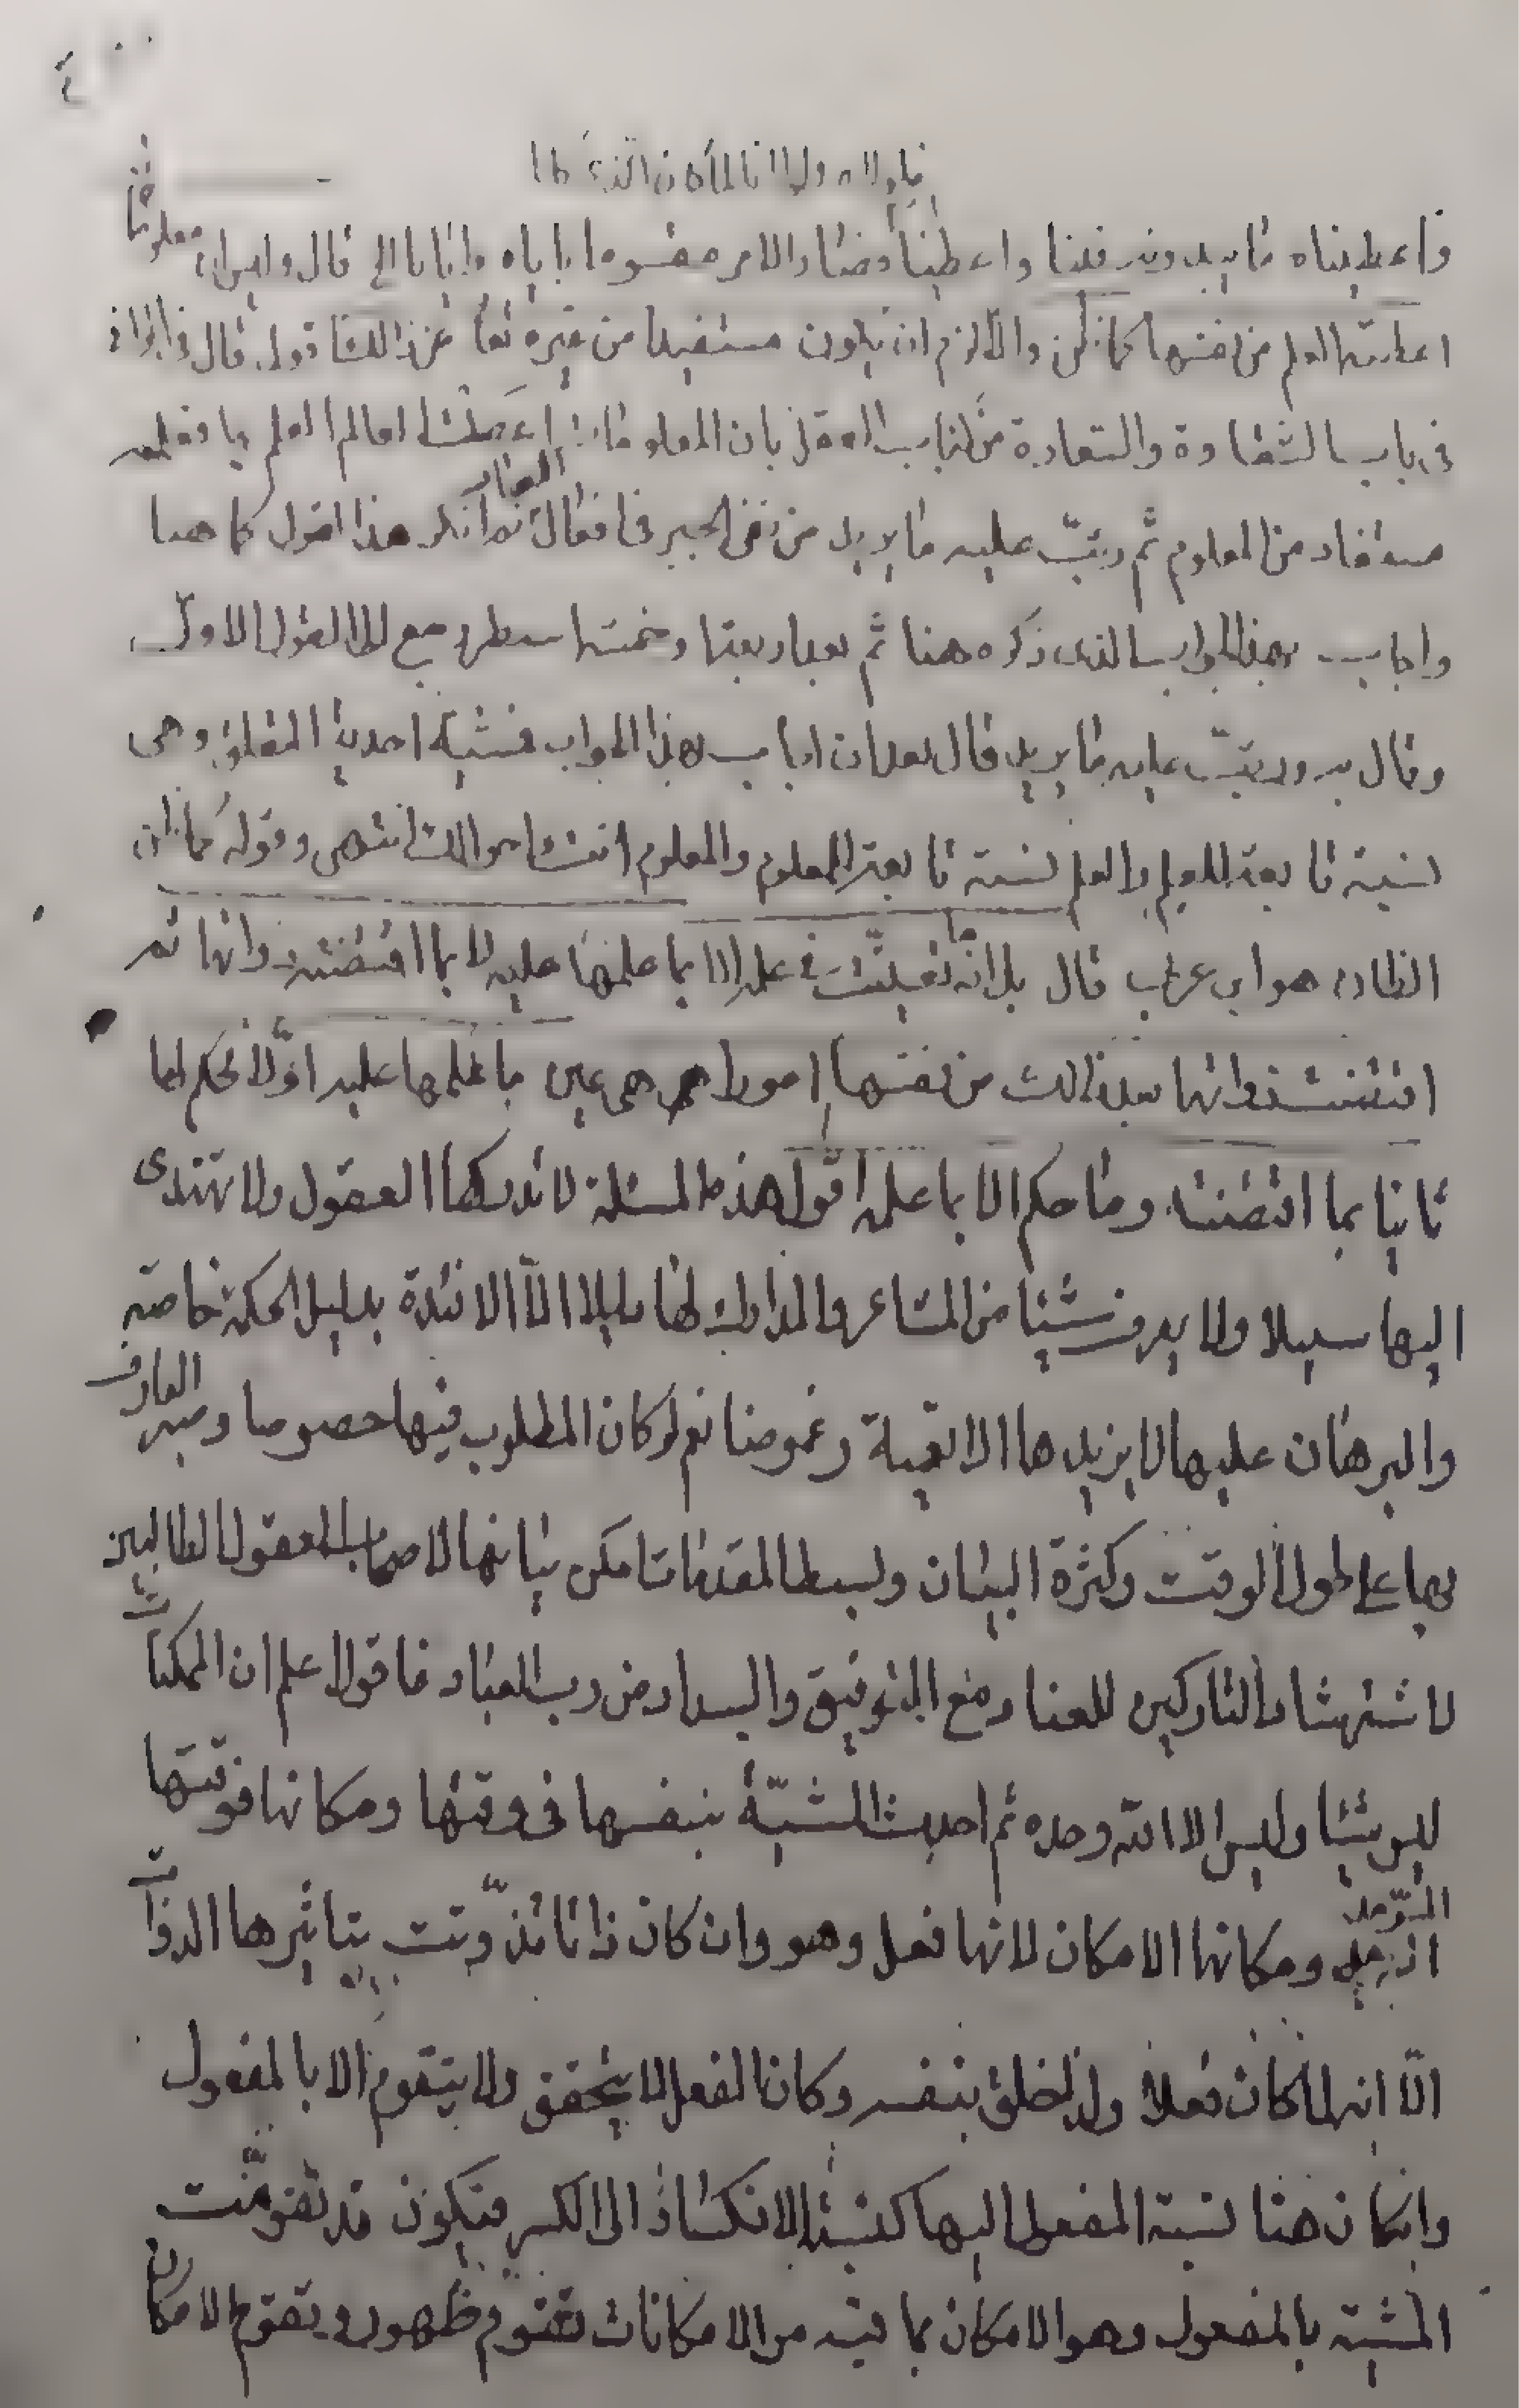 فلولاه ولولانا لما كان الذي كانا
واعطيناه ما يبدو به فينا واعطانا فصار الامر مقسوما باياه وايانا الى قال والجواب معلوماتها
اعطته العلم من نفسها كما ذكر والا لزم ان يكون مستفيدا من غيره تعالى عن ذلك قوله قال في الوافي
في باب الشقاوة والسعادة من كتاب العقل بان المعلومات اعطت العالم العلم بها فعلمه
مستفاد من المعلوم ثم رتب عليه ما يريد من نفي الجبر في افعال العباد انكر هذا القول كما هنا
واجاب بهذا الجواب الذي ذكره هنا ثم بعد اربعة وخمسة سطر رجع الى القول الاول
وقال به ورتب عليه ما يريد قال بعد ان اجاب بهذا الجواب فمشيته احدية التعلق وهي
نسبة تابعة للعلم والعلم نسبة تابعة للمعلوم والمعلوم انت واحوالك انتهى وقوله كما ظن
الظان هو ابن عربي قال بل انما تعينت في علمه الا بما علمها عليه لا بما اقتضته ذواتها ثم
اقتضت ذواتها بعد ذلك من نفسها امورا هي عين ما علمها عليه اولا فحكم لها
ثانيا بما اقتضته وما حكم الا بما علمه اقول هذه المسئلة لا تدركها العقول ولا تهتدي
اليها سبيلا ولا يعرف شيئا من المشاعر والمدارك لها دليلا الا الافئدة بدليل الحكمة خاصة
والبرهان عليها لا يزيدها الا تعمية وغموضا نعم لو كان المطلوب فيها خصوصا وسبر العارف
بها على طول الوقت وكثرة البيان وبسط المقدمات امكن بيانها لاصحاب العقول الطالبين
لاسترشاد التاركين للعناد مع التوفيق والسداد من رب العباد فاقول اعلم ان الممكنات
ليس شيئا وليس الا الله وحده ثم احدث المشيّة بنفسها في وقتها ومكانها فوقتها
السرمد ومكانها الامكان لانها فعل وهو وان كان ذاتا تذوّتت بتاثيرها الذوات
الّا انه لما كان فعلا ولذا خلق بنفسه وكان الفعل لا يتحقق ولا يتقوم الا بالمفعول
وان كان هنا نسبة المفعول اليها كنسبة الانكسار الى الكسر فيكون قد تقوّمت
المشية بالمفعول وهو الامكان بما فيه من الامكانات تقوم ظهور وتقوم الامكان